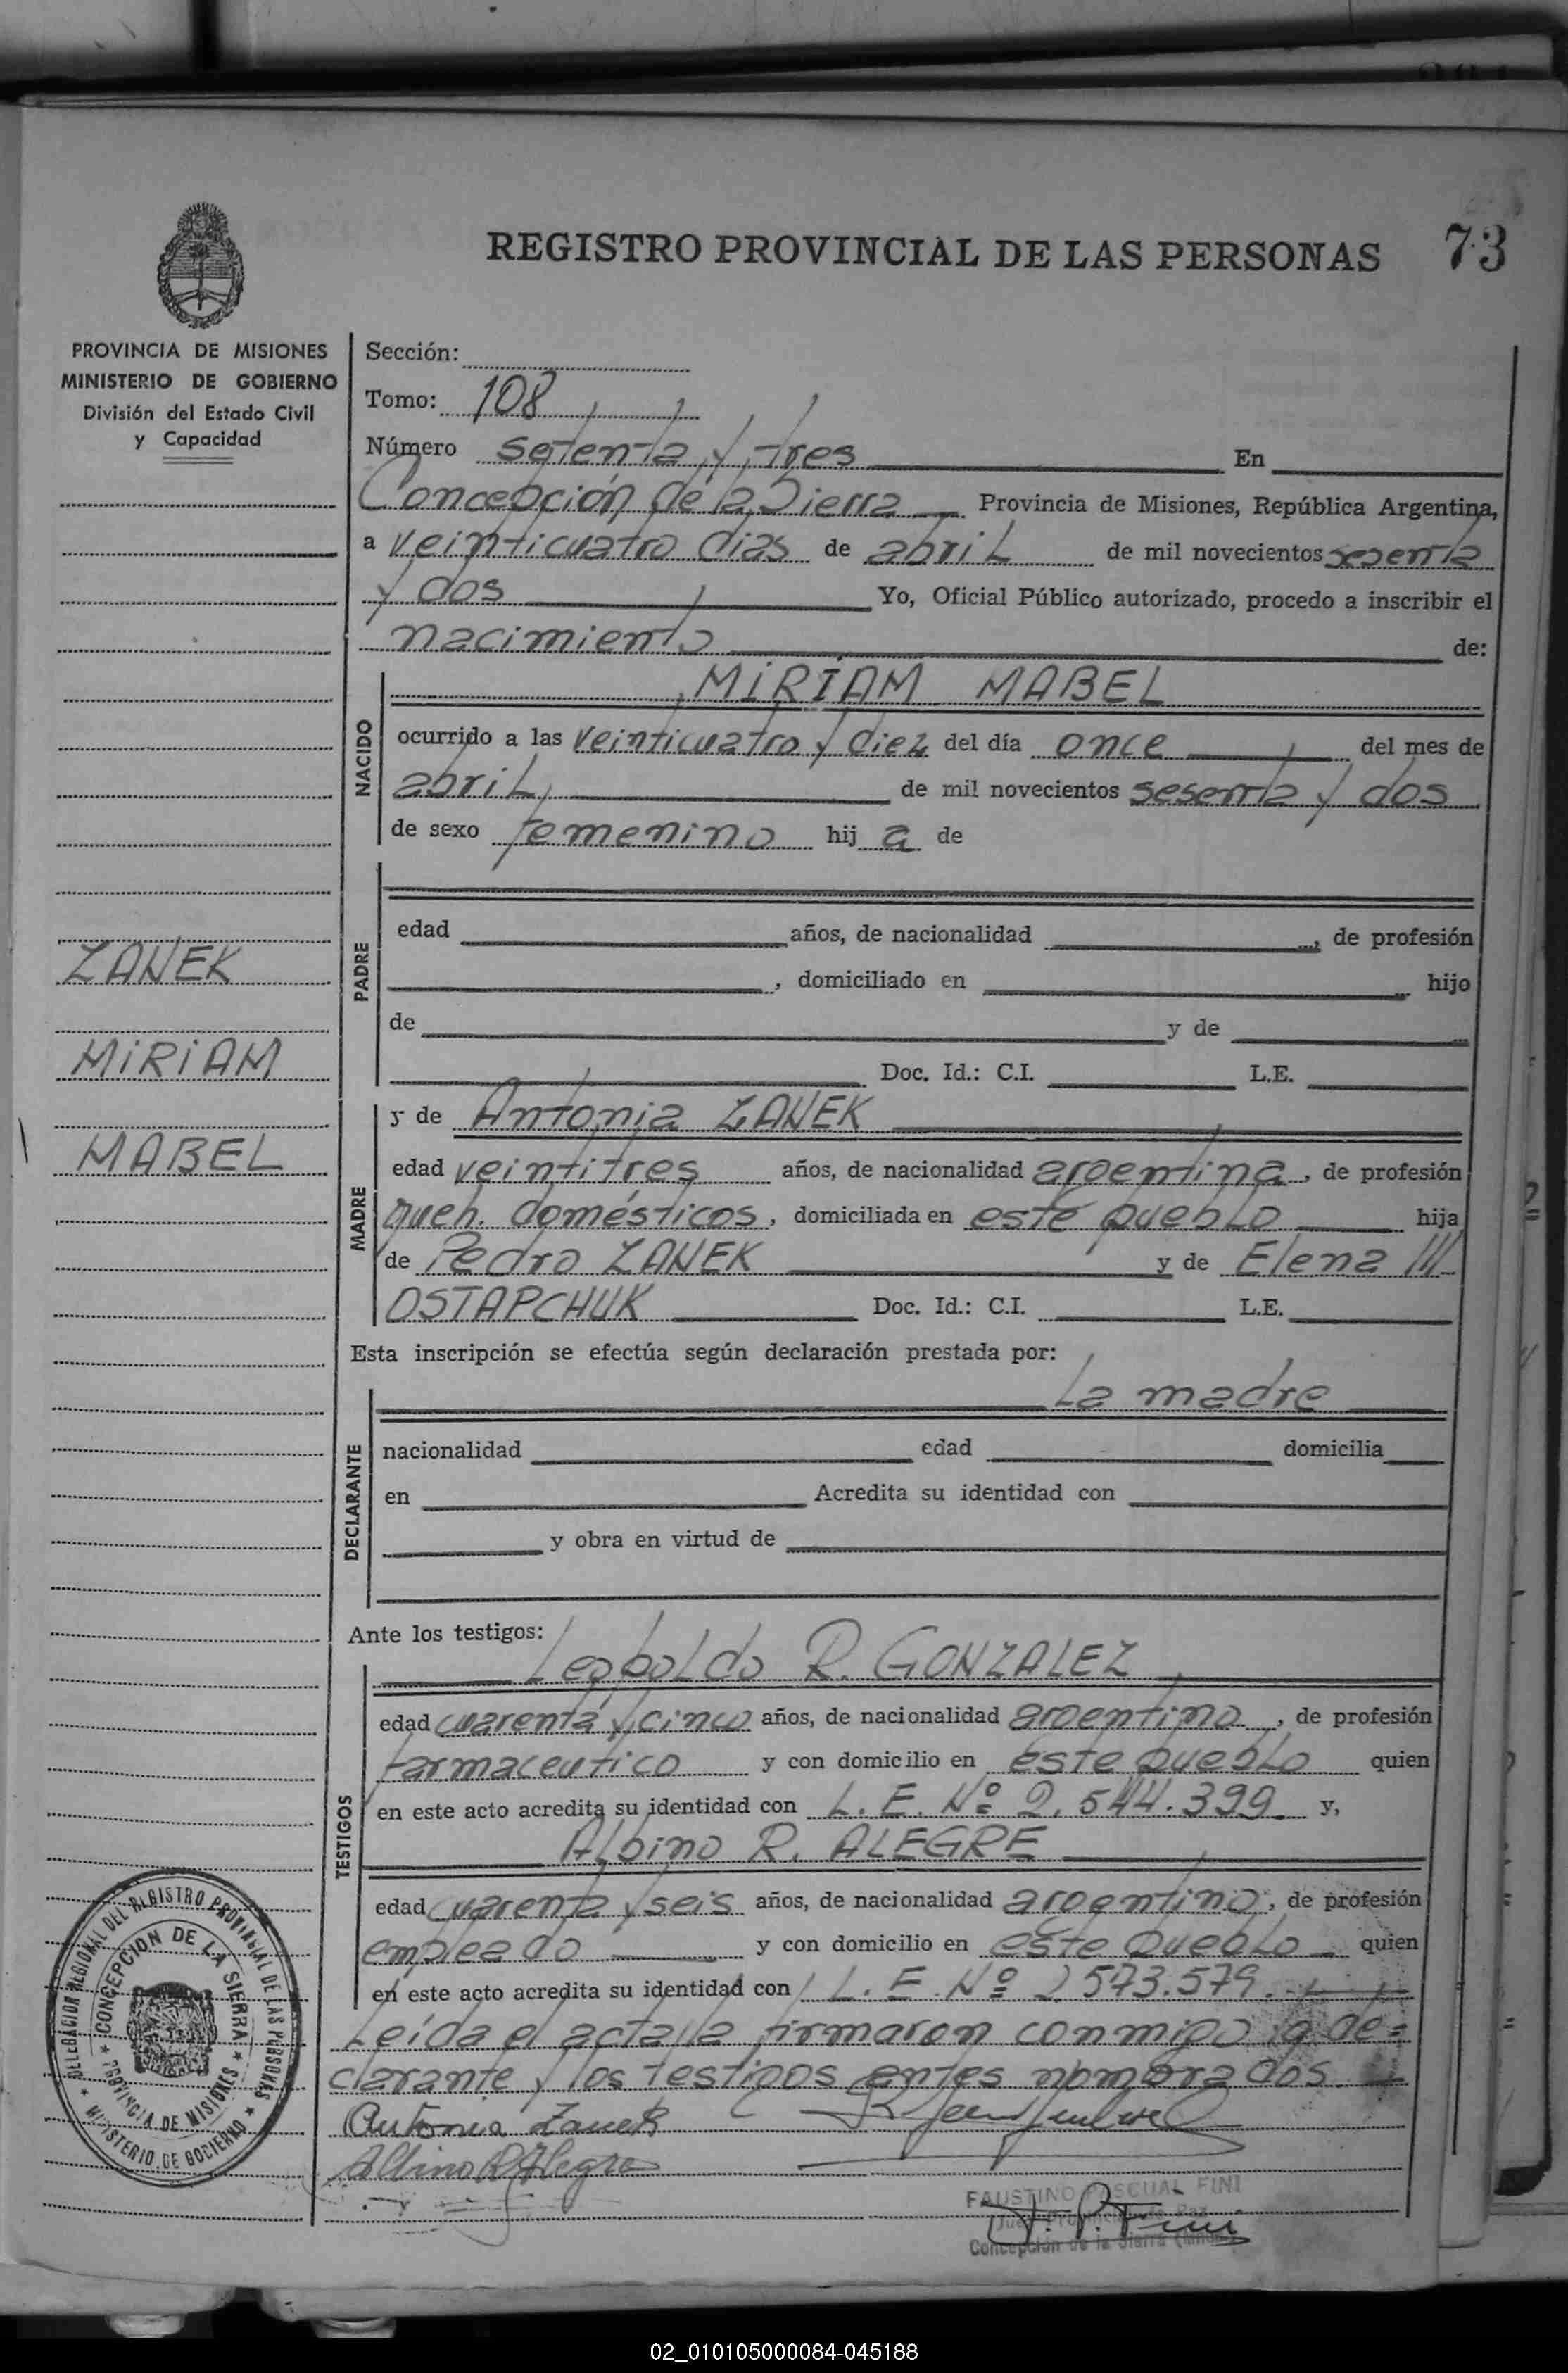 REGISTRO PROVINCIAL DE LAS PERSONAS 73
PROVINCIA DE MISIONES
MINISTERIO DE GOBIERNO
División del Estado Civil
y Capacidad
Sección:
Tomo: 108
Número setenta y tres En
Concepción de la Sierra Provincia de Misiones, República Argentina,
a veinticuatro días de abril de mil novecientos sesenta
y dos Yo, Oficial Público autorizado, procedo a inscribir el
nacimiento de:
NACIDO
MIRIAM MABEL
ocurrido a las veinticuatro y diez del día once del mes de
abril, de mil novecientos sesenta y dos
de sexo femenino hij a de
PADRE
edad años, de nacionalidad , de profesión
, domiciliado en hijo
de y de
Doc. Id.: C.I. L.E.
ZANEK
MIRIAM
MABEL
MADRE
y de Antonia ZANEK
edad veintitres años, de nacionalidad argentina, de profesión
queh. domésticos, domiciliada en este pueblo hija
de Pedro ZANEK y de Elena ///
OSTAPCHUK Doc. Id.: C.I. L.E.
Esta inscripción se efectúa según declaración prestada por:
DECLARANTE
La madre
nacionalidad edad domicilia
en Acredita su identidad con
y obra en virtud de
Ante los testigos:
TESTIGOS
Leopoldo R. GONZALEZ
edad cuarenta y cinco años, de nacionalidad argentino, de profesión
farmaceutico y con domicilio en este pueblo quien
en este acto acredita su identidad con L. E. Nº 2.544.399 y,
Albino R. ALEGRE
edad cuarenta y seis años, de nacionalidad argentino, de profesión
empleado y con domicilio en este pueblo quien
en este acto acredita su identidad con L. E. Nº 2.573.579.
Leída el acta la firmaron conmigo la de=
clarante y los testigos antes nombrados.
Antonia Zanek
Albino R Alegre
FAUSTINO PASCUAL FINI
Juez Provincial de Paz
F. P. Fini
Concepción de la Sierra
DELEGACION REGIONAL DEL REGISTRO PROVINCIAL DE LAS PERSONAS
CONCEPCION DE LA SIERRA
PROVINCIA DE MISIONES
MINISTERIO DE GOBIERNO
02_010105000084-045188